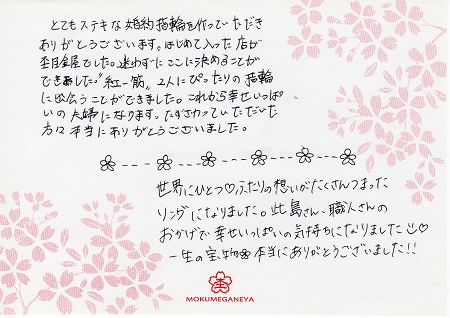 とてもステキな婚約指輪を作っていただき
ありがとうございます。はじめて入った店が
杢目金屋でした。迷わずにここに決めることが
できました。"紅一筋" 2人にぴったりの指輪
に出会うことができました。これから幸せいっぱ
いの夫婦になります。たずさわっていただいた
方々本当にありがとうございました。
世界にひとつ♡ふたりの想いがたくさんつまった
リングになりました。此島さん、職人さんの
おかげで幸せいっぱいの気持ちになりました♡
一生の宝物 本当にありがとうございました!!
MOKUMEGANEYA